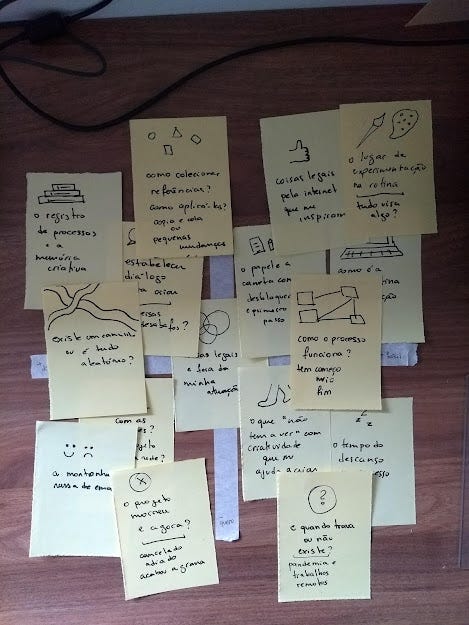 como colecionar
referências?
como aplicá-los?
copia e cola
ou
pequenas mudanças
coisas legais
pela internet
que me
inspiram
o lugar da
experimentação
na rotina
tudo visa
algo?
o registro
de processos
e a
memória
criativa
estabelecer
diálogo
o papel e a
caneta com
desbloqu
o primeiro
passo
como é a
existe um caminho
ou é tudo
aleatório?
legais
e fora da
minha
atuação
como o processo
funciona?
tem começo
meio
fim
com as
o que "não
tem a ver" com
criatividade
que me
ajuda a criar
o tempo do
descanso
a montanha
russa de emo
o projeto
morreu
e agora?
cancelado
adiado
acabou a grana
e quando trava
ou não
existe?
pandemia e
trabalhos
remotos
quero